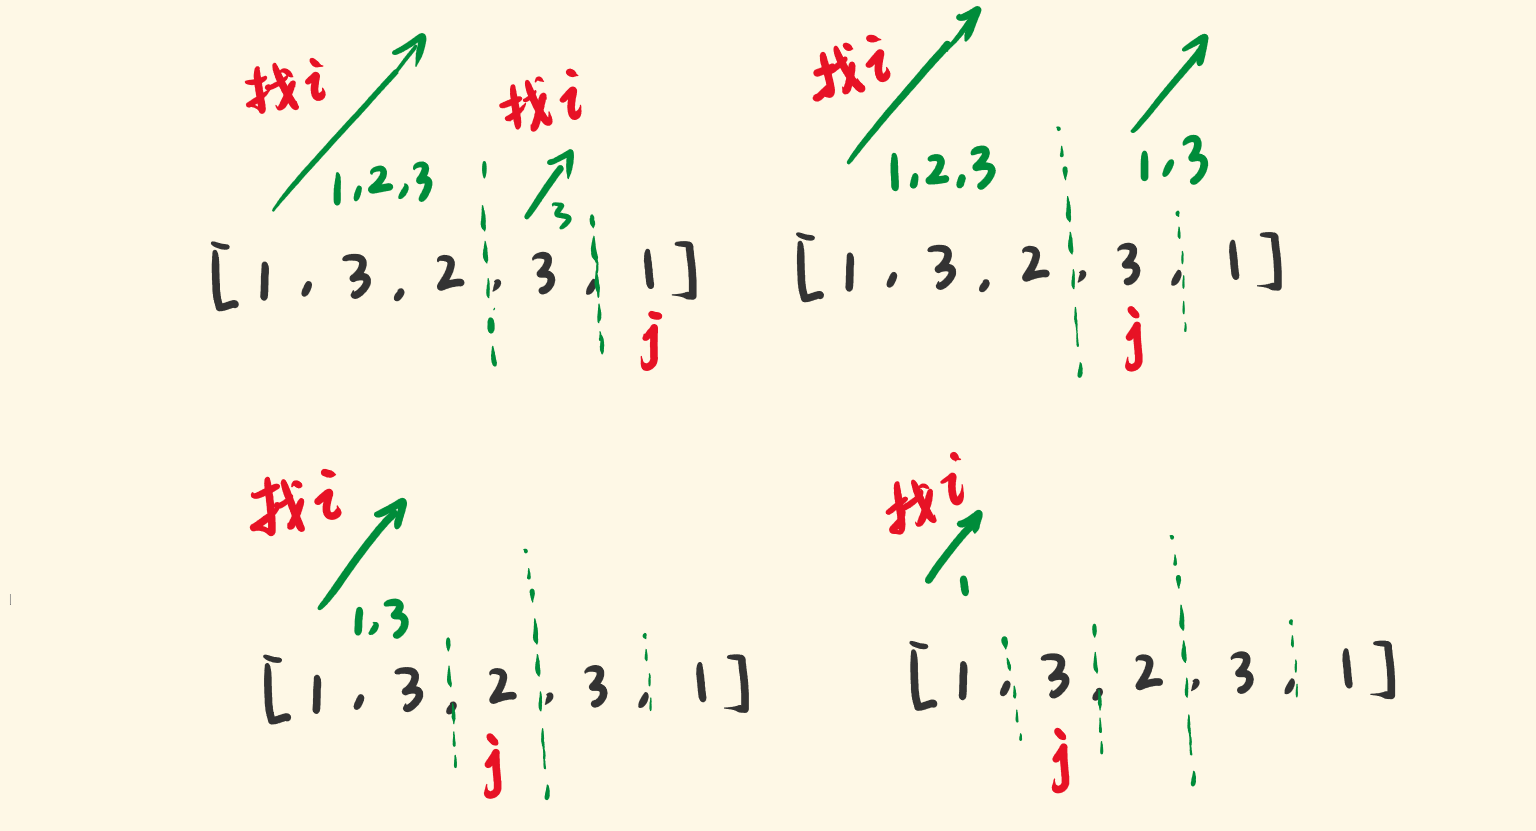 找i
找i
1,2,3
3
[1,3,2,3,1]
j
找i
1,2,3
1,3
[1,3,2,3,1]
j
找i
1,3
[1,3,2,3,1]
j
找i
1
[1,3,2,3,1]
j